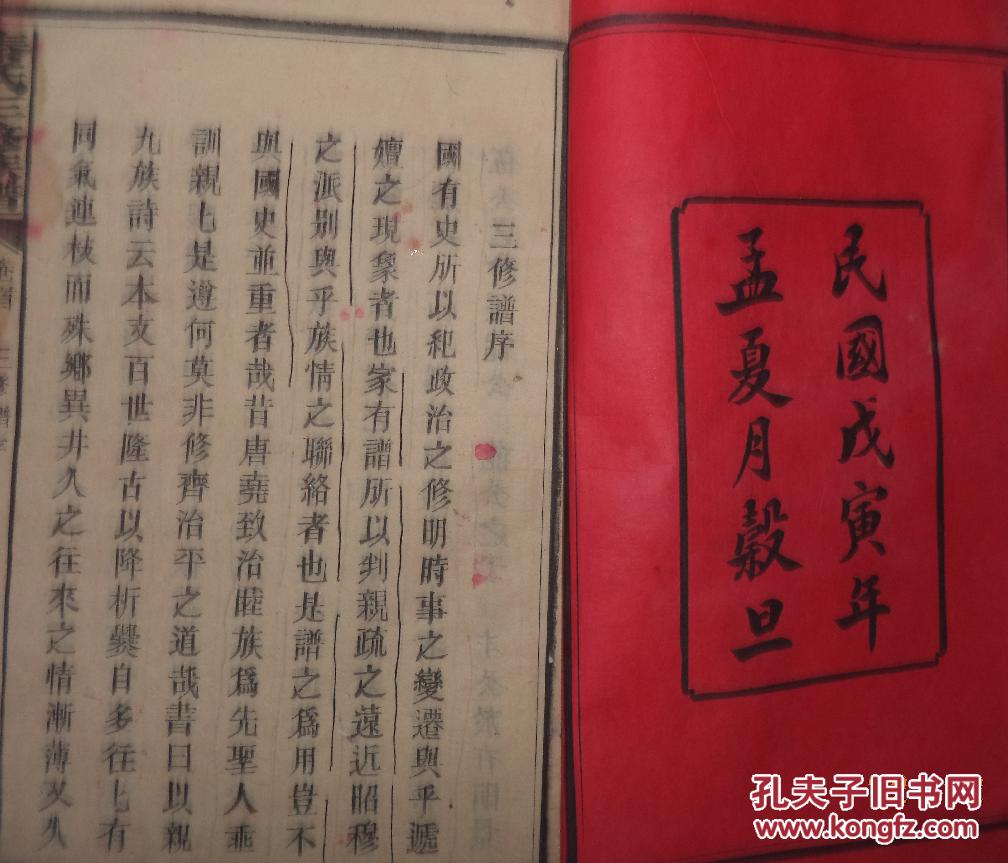 民國戊寅年
孟夏月榖旦
三修譜序
國有史所以紀政治之修明時事之變遷與乎遞
嬗之現象者也家有譜所以判親疏之遠近昭穆
之派别與乎族情之聯絡者也是譜之爲用豈不
與國史並重者哉昔唐堯致治睦族爲先聖人垂
訓親七是遵何莫非修齊治平之道哉書曰以親
九族詩云本支百世隆古以降析爨自多往七有
同氣連枝而殊鄉異井久之往來之情漸薄又久
氏三修
三修譜序
孔夫子旧书网
www.kongfz.com